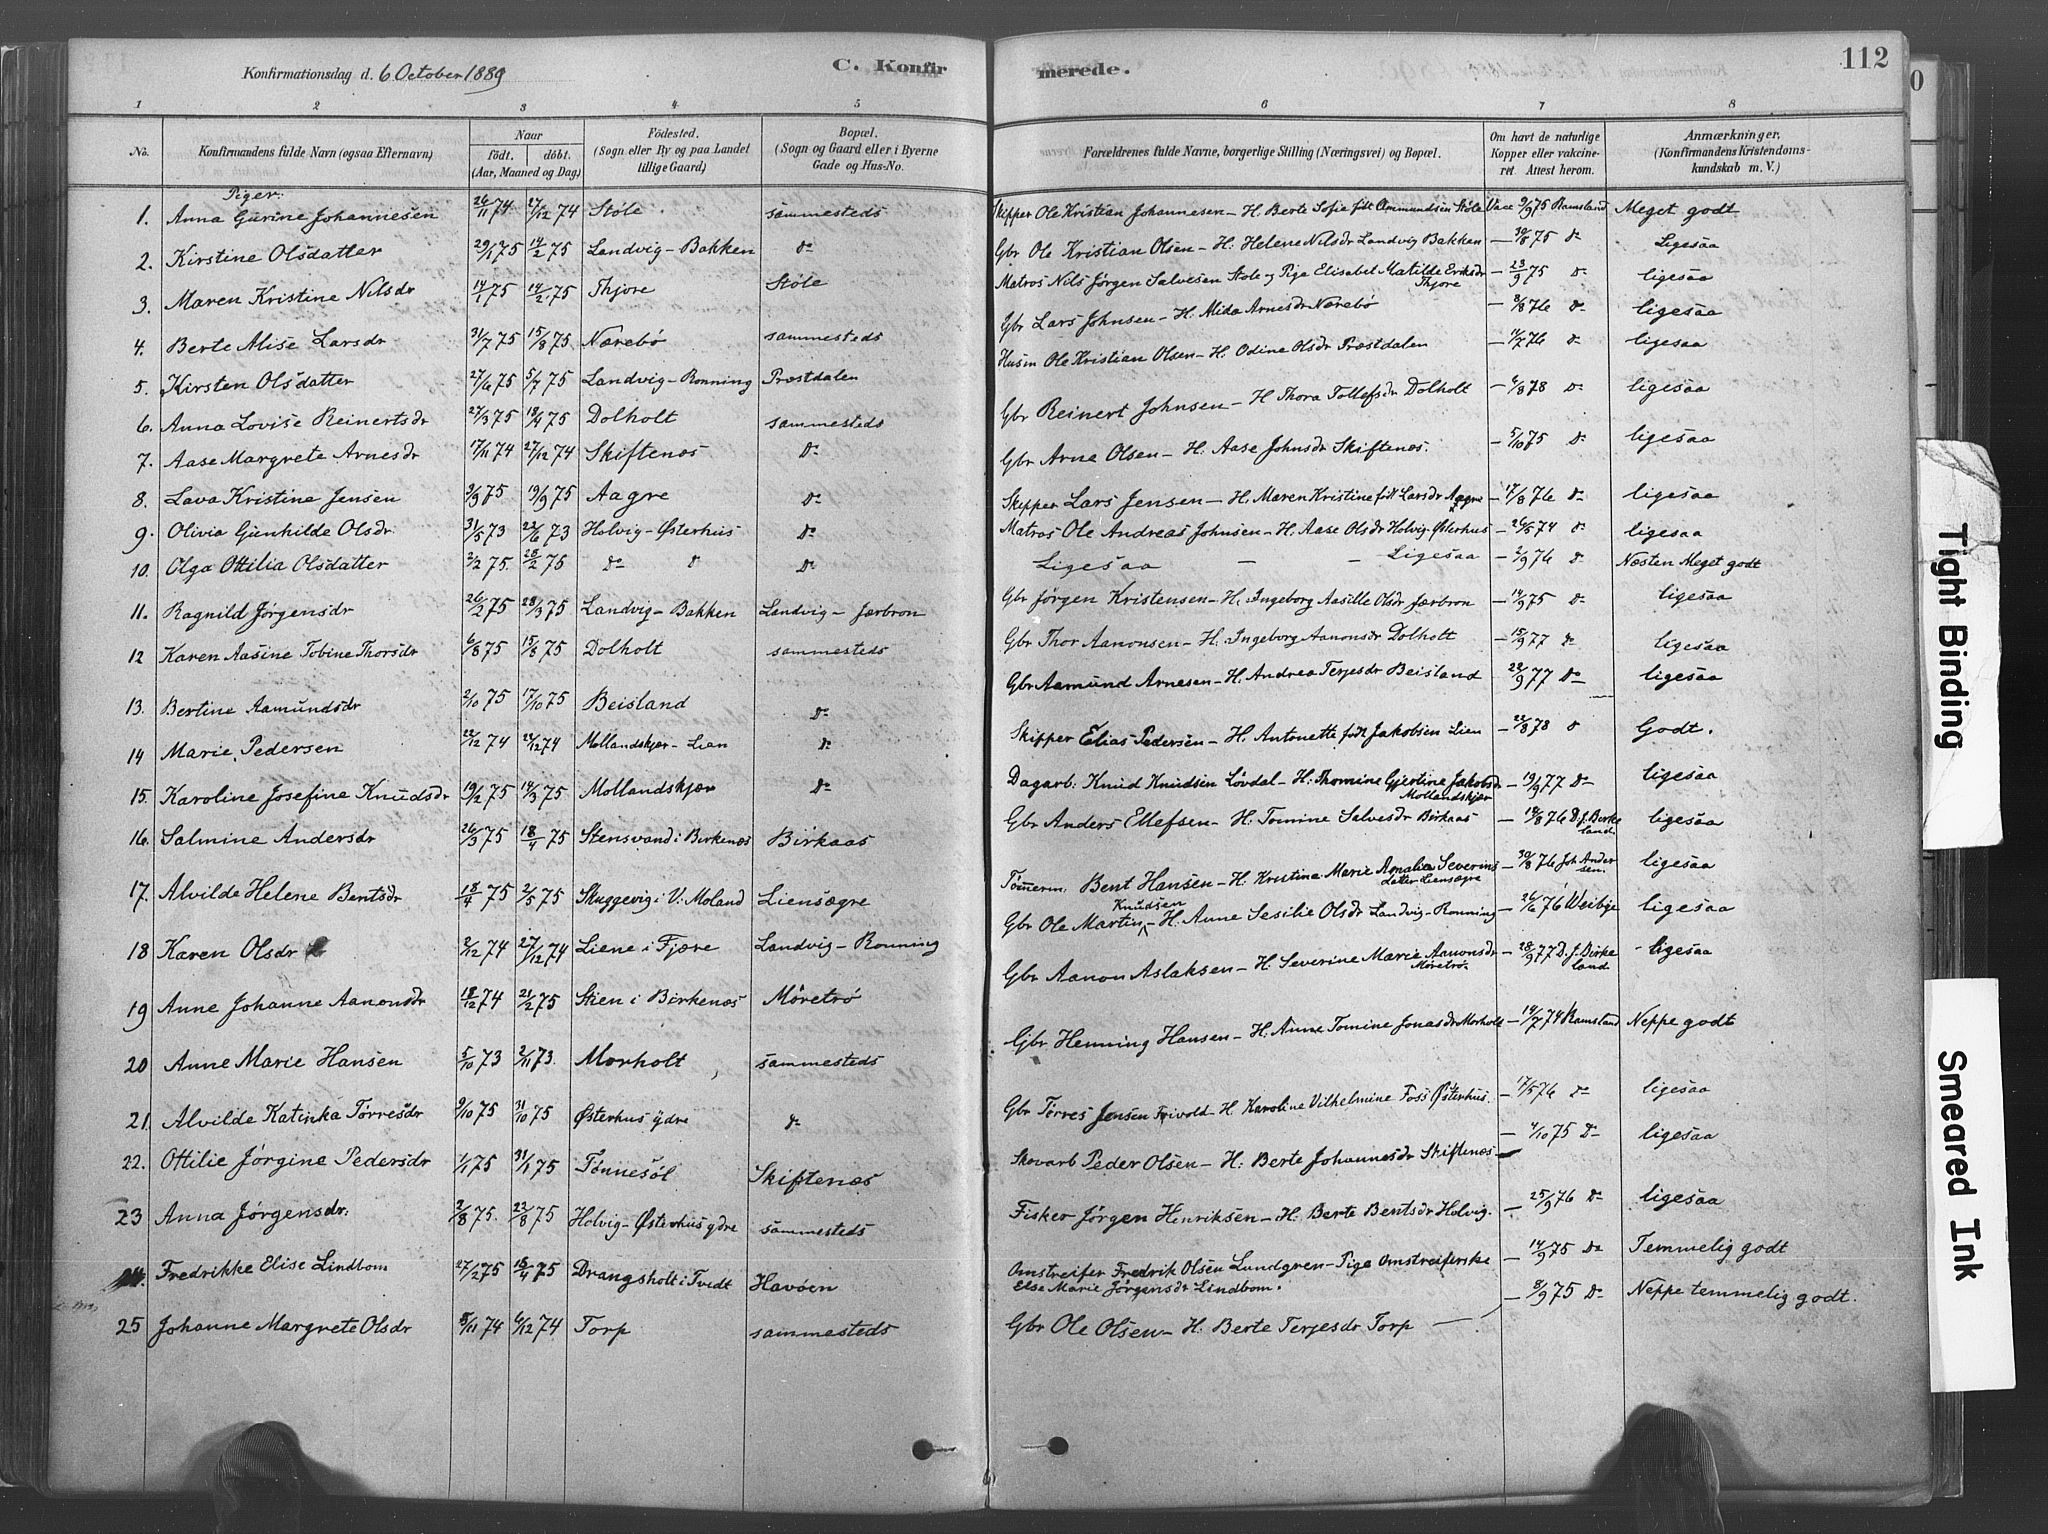 Konfirmationsdag d. 6 October 1889
C. Konfirmerede.
112
1 2 3 4 5 6 7 8
No.
Konfirmandens fulde Navn (ogsaa Efternavn)
Naar
födt. döbt.
(Aar, Maaned og Dag)
Födested.
(Sogn eller By og paa Landet tillige Gaard)
Bopæl.
(Sogn og Gaard eller i Byerne Gade og Hus-No.
Forældrenes fulde Navne, borgerlige Stilling (Næringsvei) og Bopæl.
Om havt de naturlige Kopper eller vaccineret Attest herom.
Anmærkninger,
(Konfirmandens Kristendomskundskab m. V.)
Piger.
1. Anna Gurine Johannesen 26/11 74 27/12 74 Støle sammesteds Skipper Ole Kristian Johannesen – H. Berte Sofie født Ommundsen Støle Vacc 9/9 75 Ramsland Meget godt
2. Kirstine Olsdatter 29/1 75 14/2 75 Landvig–Bakken Do Gbr Ole Kristian Olsen – H. Helene Nilsdr Landvig Bakken – 30/8 75 Do Ligesaa
3. Maren Kristine Nilsdr 14/1 75 14/2 75 Thjore Støle Matros Nils Jørgen Salvesen Støle og Pige Elisabet Matilde Eriksdr Thjore – 23/9 75 Do ligesaa
4. Berte Alise Larsdr 31/7 75 15/8 75 Nærebø sammesteds Gbr Lars Johnsen – H. Alida Arnesdr Nærebø – 8/8 76 Do ligesaa
5. Kirsten Olsdatter 27/6 75 5/7 75 Landvig–Rønning Præstdalen Husm Ole Kristian Olsen – H. Odine Olsdr Præstdalen – 14/7 76 Do ligesaa
6. Anna Lovise Reinertsdr 27/3 75 18/4 75 Dolholt sammesteds Gbr Reinert Johnsen – H Thora Tollefsdr Dolholt – 6/8 78 Do ligesaa
7. Aase Margrete Arnesdr 17/11 74 27/12 74 Skiftenæs Do Gbr Arne Olsen – H. Aase Johnsdr Skiftenæs. – 5/10 75 Do ligesaa
8. Lava Kristine Jensen 2/9 75 19/9 75 Aagre Do Skipper Lars Jensen – H. Maren Kristine født Larsdr Aagre – 17/8 76 Do ligesaa
9. Olivia Gunhilde Olsdr 31/5 73 22/6 73 Holvig–Østerhus Do Matros Ole Andreas Johnsen – H. Aase Olsdr Holvig–Østerhus – 26/8 74 Do ligesaa
10. Olga Ottilia Olsdatter 2/2 75. 28/2 75 Do Do Do Ligesaa – – Ligesaa – 2/9 76 Do Næsten Meget godt
11. Ragnild Jørgensdr 26/2 75 28/3 75 Landvig–Bakken Landvig–Jærbron Gbr Jørgen Kristensen – H. Ingeborg Aasille Olsdr Jærbron – 14/9 75 Do ligesaa
12 Karen Aasine Tobine Thorsdr 6/8 75 15/8 75 Dolholt sammesteds Gbr Thor Aanonsen – H. Ingeborg Aanonsdr Dolholt – 15/9 77 Do ligesaa
13. Bertine Aamundsdr 2/10 75 17/10 75 Beisland Do Gbr Aamund Arnesen – H. Andrea Terjesdr Beisland – 22/9 77 Do ligesaa
14 Marie Pedersen 22/12 74 26/12 74 Mollandskjær–Lien Do Skipper Elias Pedersen – H. Antonette født Jakobsen Lien – 22/8 78 Do Godt.
15. Karoline Josefine Knudsdr 19/2 75 14/3 75 Mollandskjær Do Dagarb. Knud Knudsen Løvdal – H. Thomine Gjertine Jakobsdr Mollandskjær – 19/9 77 Do ligesaa
16. Salmine Andersdr 26/3 75 18/4 75 Stensvand i Birkenæs Birkaas Gbr Anders Ellefsen – H. Tomine Salvesdr Birkaas – 14/8 76 D. f. Birkeland ligesaa
17. Alvilde Helene Bentsdr 18/4 75 2/5 75 Skuggevig i V. Moland Liensægre Tømmerm. Bent Hansen – H. Kristine Marie Amalie Severinsdatter Liensægre – 30/8 76 Joh Andersen. ligesaa
18 Karen Olsdr 2/12 74 27/12 74 Liene i Fjære Landvig–Rønning Gbr Ole Martin Knudsen – H. Anne Sesilie Olsdr Landvig–Rønning – 26/6 76 Weibye ligesaa
19 Anne Johanne Aanonsdr 18/12 74 21/2 75 Stien i Birkenæs Møretrø Gbr Aanon Aslaksen – H. Severine Marie Aanonsdr Møretrø. – 28/9 77 D. f. Birkeland – ligesaa
20 Anne Marie Hansen 5/10 73 2/11 73. Morholt sammesteds Gbr Henning Hansen – H. Anne Tomine Jonasdr Morholt – 14/7 74 Ramsland Neppe godt
21. Alvilde Katinka Tørresdr 9/10 75 31/10 75 Østerhus ydre Do Gbr Tørres Jensen Frivold – H. Karoline Vilhelmine Foss Østerhus. – 17/5 76 Do ligesaa
22. Ottilie Jørgine Pedersdr 1/1 75 31/1 75 Tønnesøl Skiftenæs Skovarb Peder Olsen – H. Berte Johannesdr Skiftenæs – 4/10 75 Do ligesaa
23 Anna Jørgensdr. 2/8 75. 22/8 75 Holvig–Østerhus ydre sammesteds Fisker Jørgen Henriksen – H. Berte Bentsdr Holvig. – 25/9 76 Do ligesaa
24. Fredrikke Elise Lindbom 27/2 75 18/4 75 Drangsholt i Tvedt Havøen Omstreifer Fredrik Olsen Lundgren – Pige Omstreiferske Else Marie Jørgensdr Lindbom. – 14/9 75 Do Temmelig godt
25 Johanne Margrete Olsdr 5/11 74 6/12 74 Torp sammesteds Gbr Ole Olsen – H. Berte Terjesdr Torp – 8/9 75 Do Neppe temmelig godt.
Tight Binding
Smeared Ink